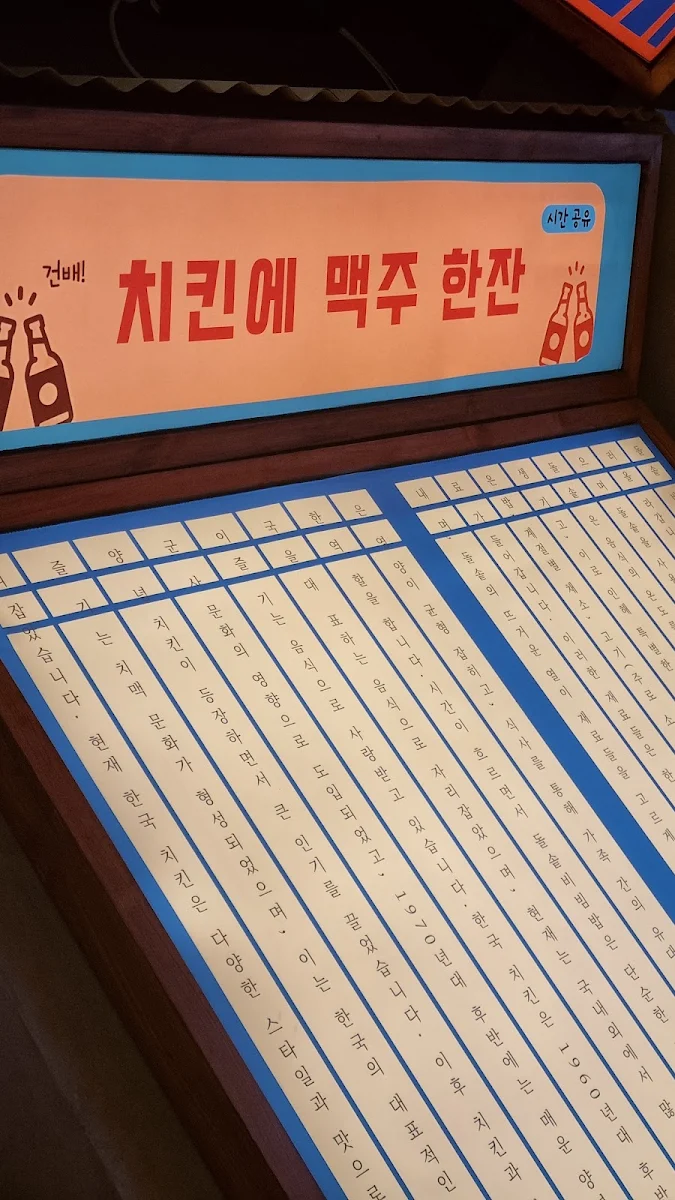 건배!
치킨에 맥주 한잔
시간 공유
돌솥
리올라갑니
으며 돌솥을 사용
돌솥은 음식의 온도를
생기고, 이로 인해 특별한
은밥 계절별 채소, 고기(주로 소
료가 들어갑니다. 이러한 재료들은 한
내며, 돌솥의 뜨거운 열이 재료들을 고르게
은 영양이 균형 잡히고, 식사를 통해 가족 간의 유대
한 역할을 합니다. 시간이 흐르면서 돌솥비빔밥은 단순한
국을 대표하는 음식으로 자리잡았으며, 현재는 국내외에서 많
이 즐기는 음식으로 사랑받고 있습니다. 한국 치킨은 1960년대 후반
군사 문화의 영향으로 도입되었고, 1970년대 후반에는 매운 양
양념 치킨이 등장하면서 큰 인기를 끌었습니다. 이후 치킨과
즐기는 치맥 문화가 형성되었으며, 이는 한국의 대표적인
잡았습니다. 현재 한국 치킨은 다양한 스타일과 맛으로